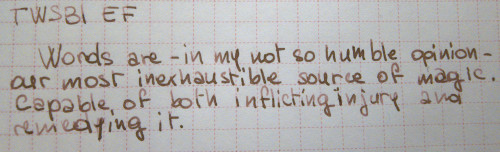 TWSBI EF
Words are - in my not so humble opinion -
our most inexhaustible source of magic.
Capable of both inflicting injury and
remedying it.